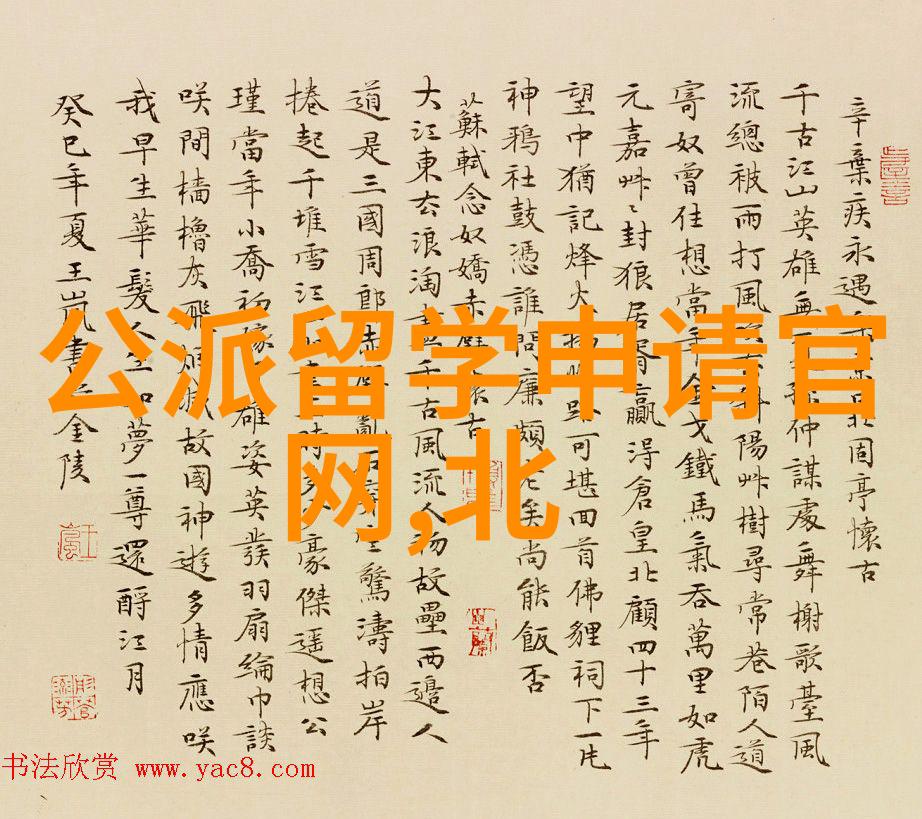 辛棄疾永遇北固亭懷古
千古江山英雄無孫仲謀處舞榭歌臺風
流總被雨打風斜陽艸樹尋常巷陌人道
寄奴曾住想當年金戈鐵馬氣吞萬里如虎
元嘉艸〻封狼居胥贏得倉皇北顧四十三年
望中猶記烽火揚路可堪回首佛貍祠下一片
神鴉社鼓憑誰問廉頗老矣尚能飯否
蘇軾念奴嬌赤壁懷古
大江東去浪淘盡千古風流人物故壘西邊人
道是三國周郎赤壁亂石穿空驚濤拍岸
捲起千堆雪江一時多少豪傑遥想公
瑾當年小喬初嫁雄姿英發羽扇綸巾談
咲間檣櫓灰飛煙滅故國神遊多情應咲
我早生華髮人生如夢一尊還酹江月
癸巳年夏王嵐書于金陵
公派留学申请官
网,北
书法欣赏 www.yac8.com